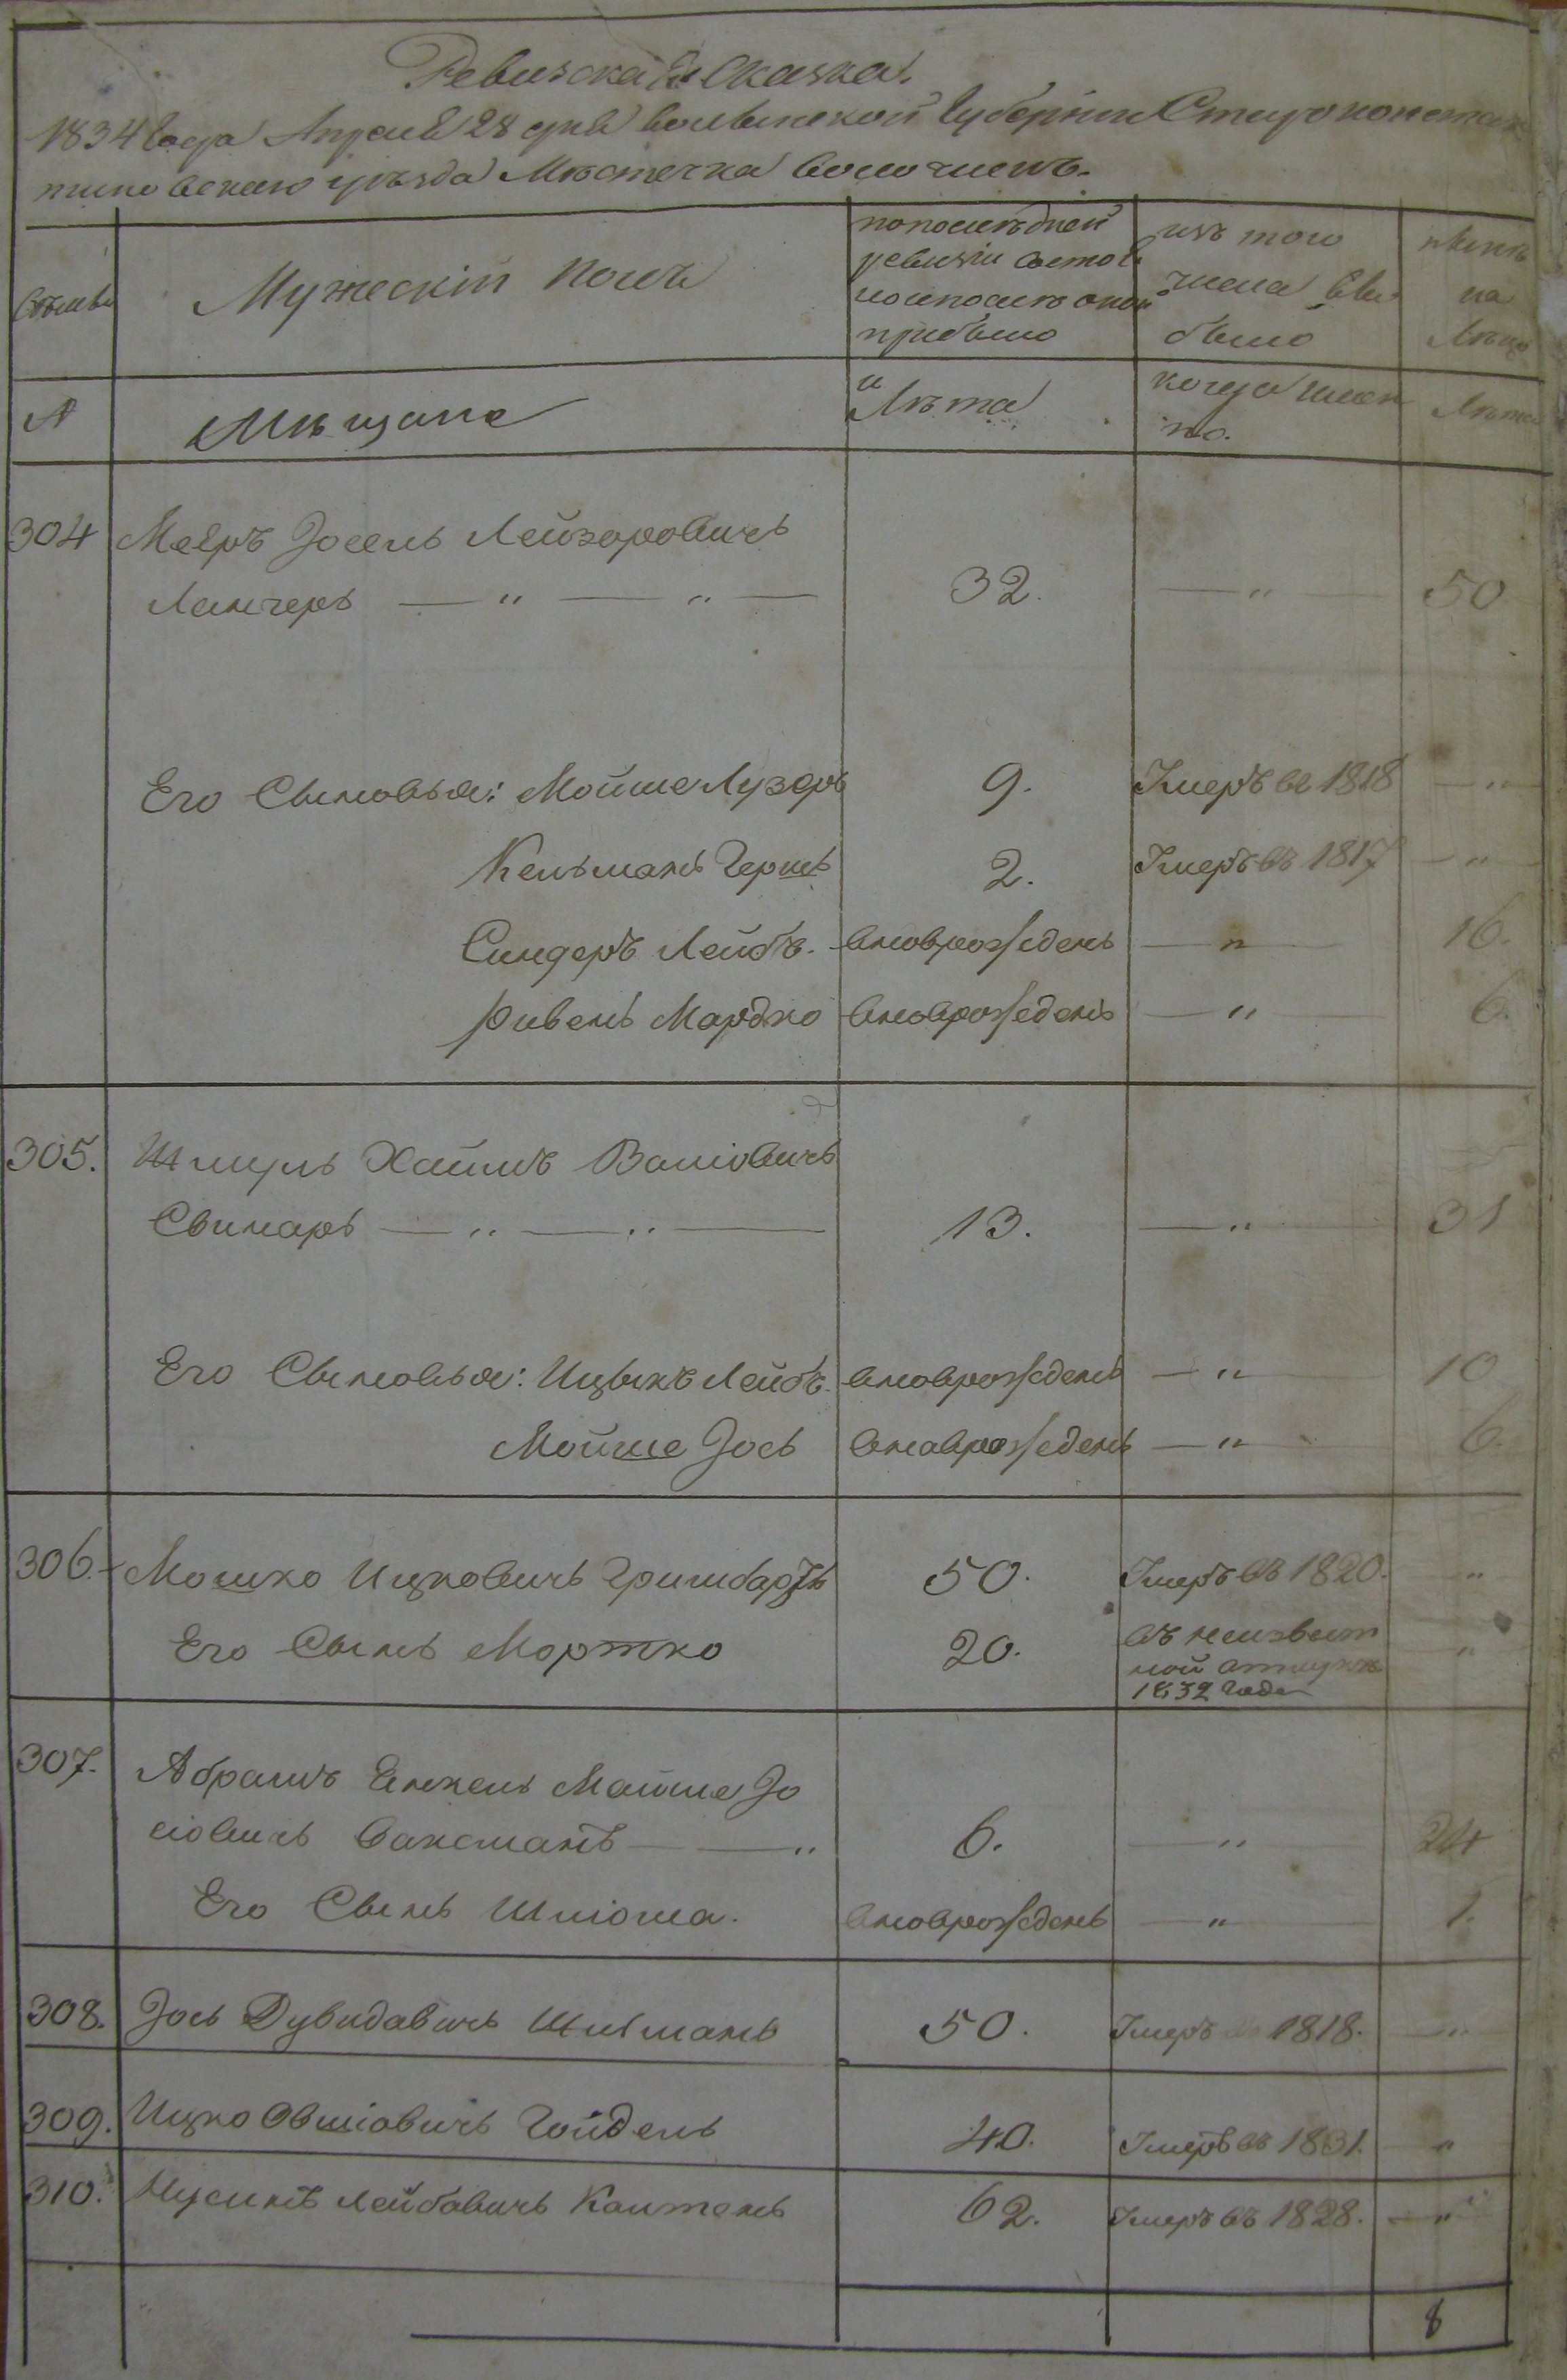 Ревизская Сказка.
1834 Года Апреля 28 дня Волынской Губернии Староконстан
тиновскаго уѣзда Мѣстечка Волочискъ.
Семьи
Мужескій Полъ
по последней
ревизіи состоя
ло и после оной
прибыло
изъ того
числа вы
было
нынѣ
на
Лицо
№
Мѣщане
Лѣта
когда имен
но.
Лѣта
304 Мееръ Іосель Лейзоровичъ
Ланчеръ — " — " — 32. — " — 50
Его Сыновья: Мойше Лузеръ 9. Умеръ въ 1818 — "
Кельманъ Гершъ 2. Умеръ въ 1817 — "
Сындеръ Лейбъ. вновьрожденъ — " — 16.
Ривенъ Мордко вновьрожденъ — " — 6.
305. Шмуль Хаимъ Волловичъ
Свинаръ — " — " — 13. — " — 31
Его Сыновья: Ицыкъ Лейбъ. вновьрожденъ — " 10
Мойше Іось вновьрожденъ — " 6.
306. Мошко Ицковичъ 50. Умеръ въ 1820. "
Его Сынъ Мортко 20. въ неизвест
ной отлучке
1832 года "
307. Абрамъ Енкель Мойше Іо
сіовичъ Ваксманъ — " 6. — " — 24
Его Сынъ Шліома. вновьрожденъ — " — 1.
308. Іось Дувидовичъ 50. Умеръ въ 1818. — "
309. Ицко Овшіовичъ Гойдель 40. Умеръ въ 1831. "
310. Нусинъ Лейбовичъ 62. Умеръ въ 1828. — "
8